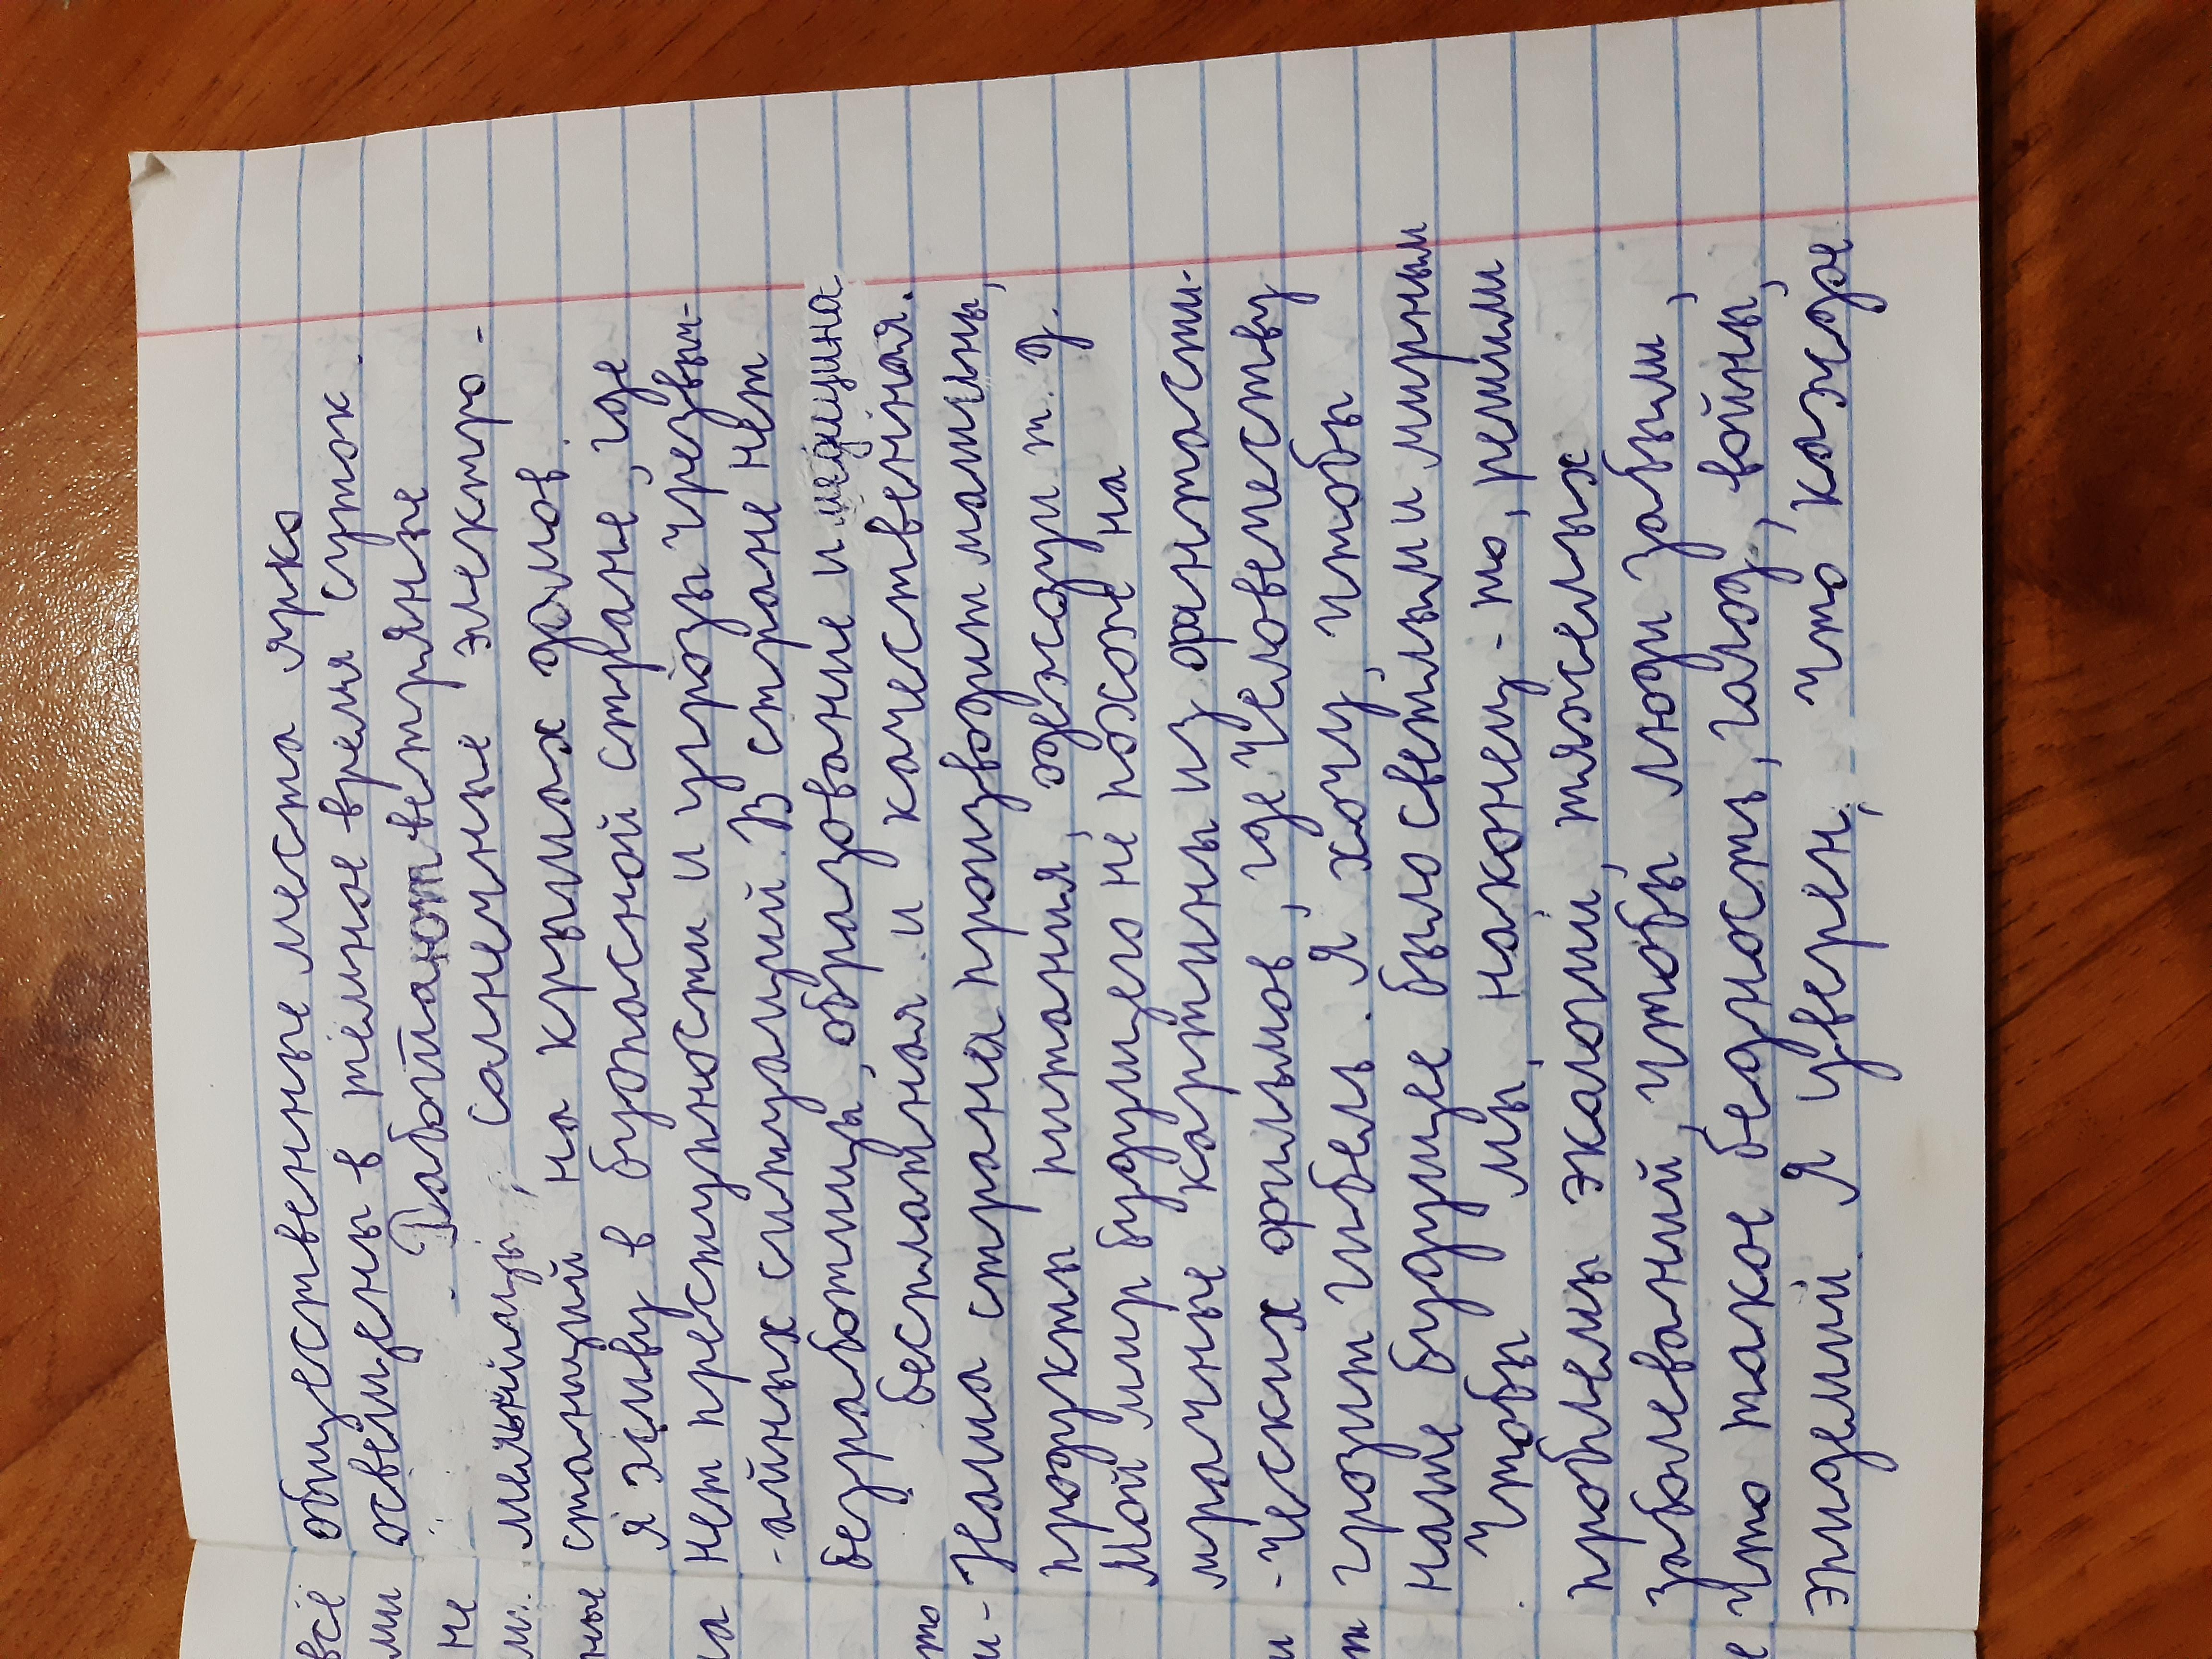 общественные места ярко
освещены в тёмное время суток.
Работают ветряные
мельницы, солнечные электро-
станций на крышах домов.
Я живу в безопасной стране, где
нет преступности и угрозы чрезвы-
-айных ситуаций. В стране нет
безработицы, образование и медицина
бесплатная и качественная.
Наша страна производит машины,
продукты питания, одежду и т. д.
Мой мир будущего не похож на
мрачные картины из фантасти-
-ческих фильмов, где человечеству
грозит гибель. Я хочу, чтобы
наше будущее было светлым и мирным
Чтобы мы, наконец-то, решили
проблемы экологии, тяжелых
заболеваний, чтобы люди забыли,
что такое бедность, голод, войны,
эпидемии. Я уверен, что каждое
всё
ми
не
м.
ные
на
то
и-
и
т
е